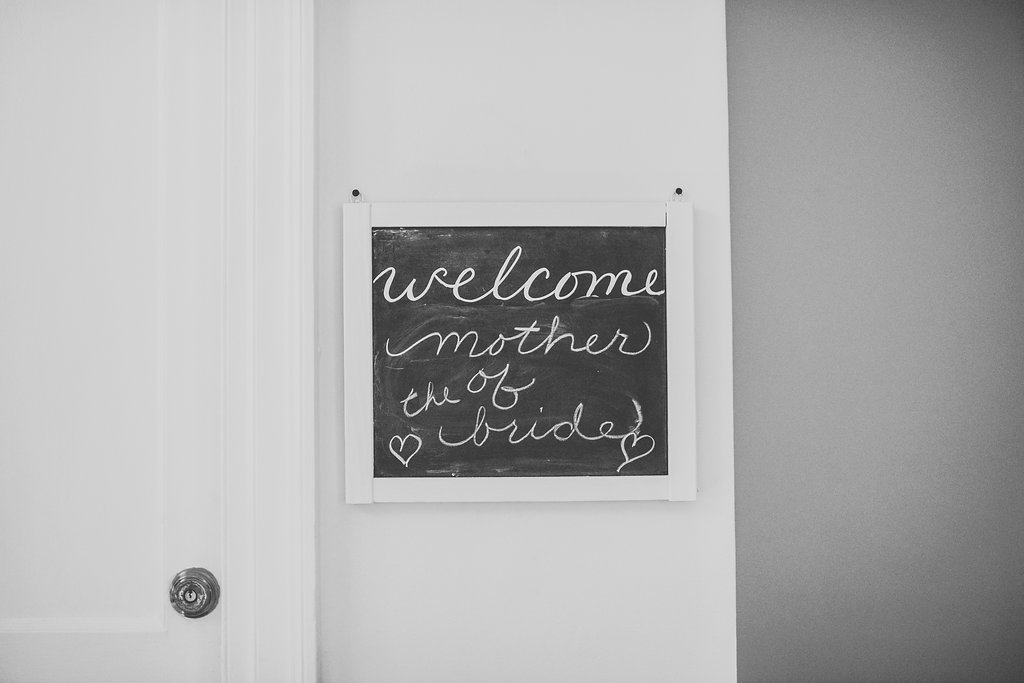 welcome
mother
of
the
bride